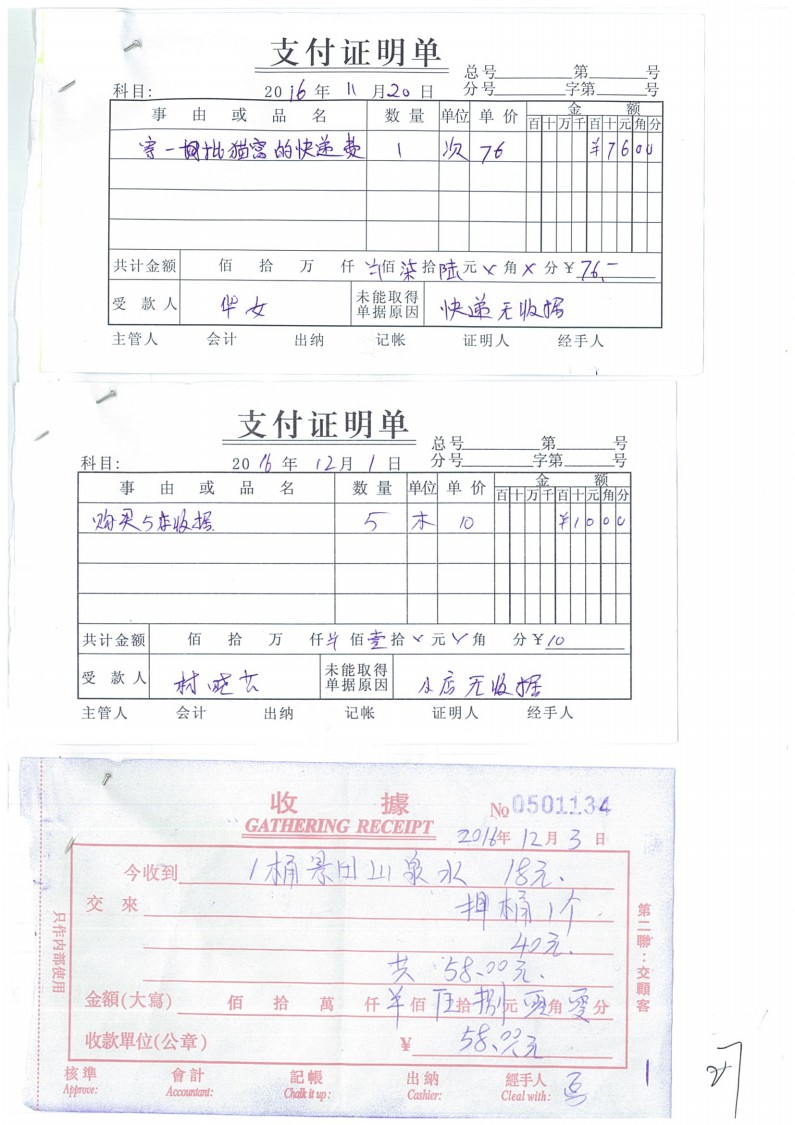 支付证明单
总号 第 号
科目: 2016年11月20日 分号 字第 号
事由或品名 数量 单位 单价 金额
百十万千百十元角分
寄一批猫窝的快递费 1 次 76 ¥7600
共计金额 佰 拾 万 仟 佰柒拾陆元 角 分 ¥76.-
受款人 华女 未能取得单据原因 快递无收据
主管人 会计 出纳 记帐 证明人 经手人
支付证明单
总号 第 号
科目: 2016年12月1日 分号 字第 号
事由或品名 数量 单位 单价 金额
百十万千百十元角分
购买5本收据 5 本 10 ¥1000
共计金额 佰 拾 万 仟 佰壹拾 元 角 分 ¥10
受款人 村 未能取得单据原因 店无收据
主管人 会计 出纳 记帐 证明人 经手人
收據
GATHERING RECEIPT
No 0501134
2016年12月3日
今收到 1桶景田山泉水 18元.
交來 押桶1个
40元.
共 58.00元.
金額(大寫) 佰 拾 萬 仟 佰伍拾捌元零角零分
收款單位(公章) ¥ 58.00元
核準 會計 記帳 出納 經手人
Approve: Accountant: Chalk it up: Cashier: Cleal with:
只作内部使用
第二聯:交顧客